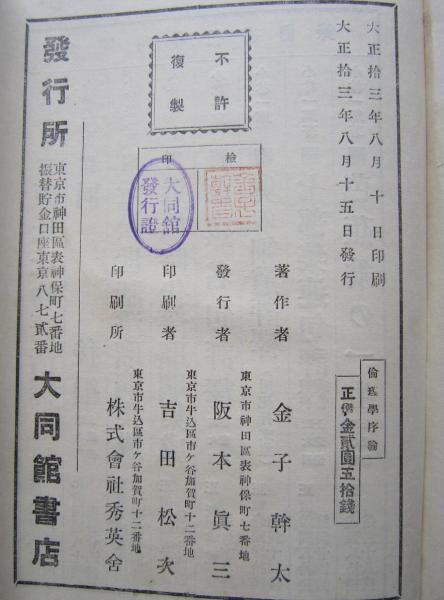 大正拾三年八月十日印刷
大正拾三年八月十五日發行
倫理學序論
正價金貳圓五拾錢
不許
復製
檢
印
大同館
發行證
著作者 金子幹太
東京市神田區表神保町七番地
發行者 阪本眞三
東京市牛込區市ケ谷加賀町十二番地
印刷者 吉田松次
東京市牛込區市ケ谷加賀町十二番地
印刷所 株式會社秀英舍
發行所
東京市神田區表神保町七番地
振替貯金口座東京八七貳番
大同館書店